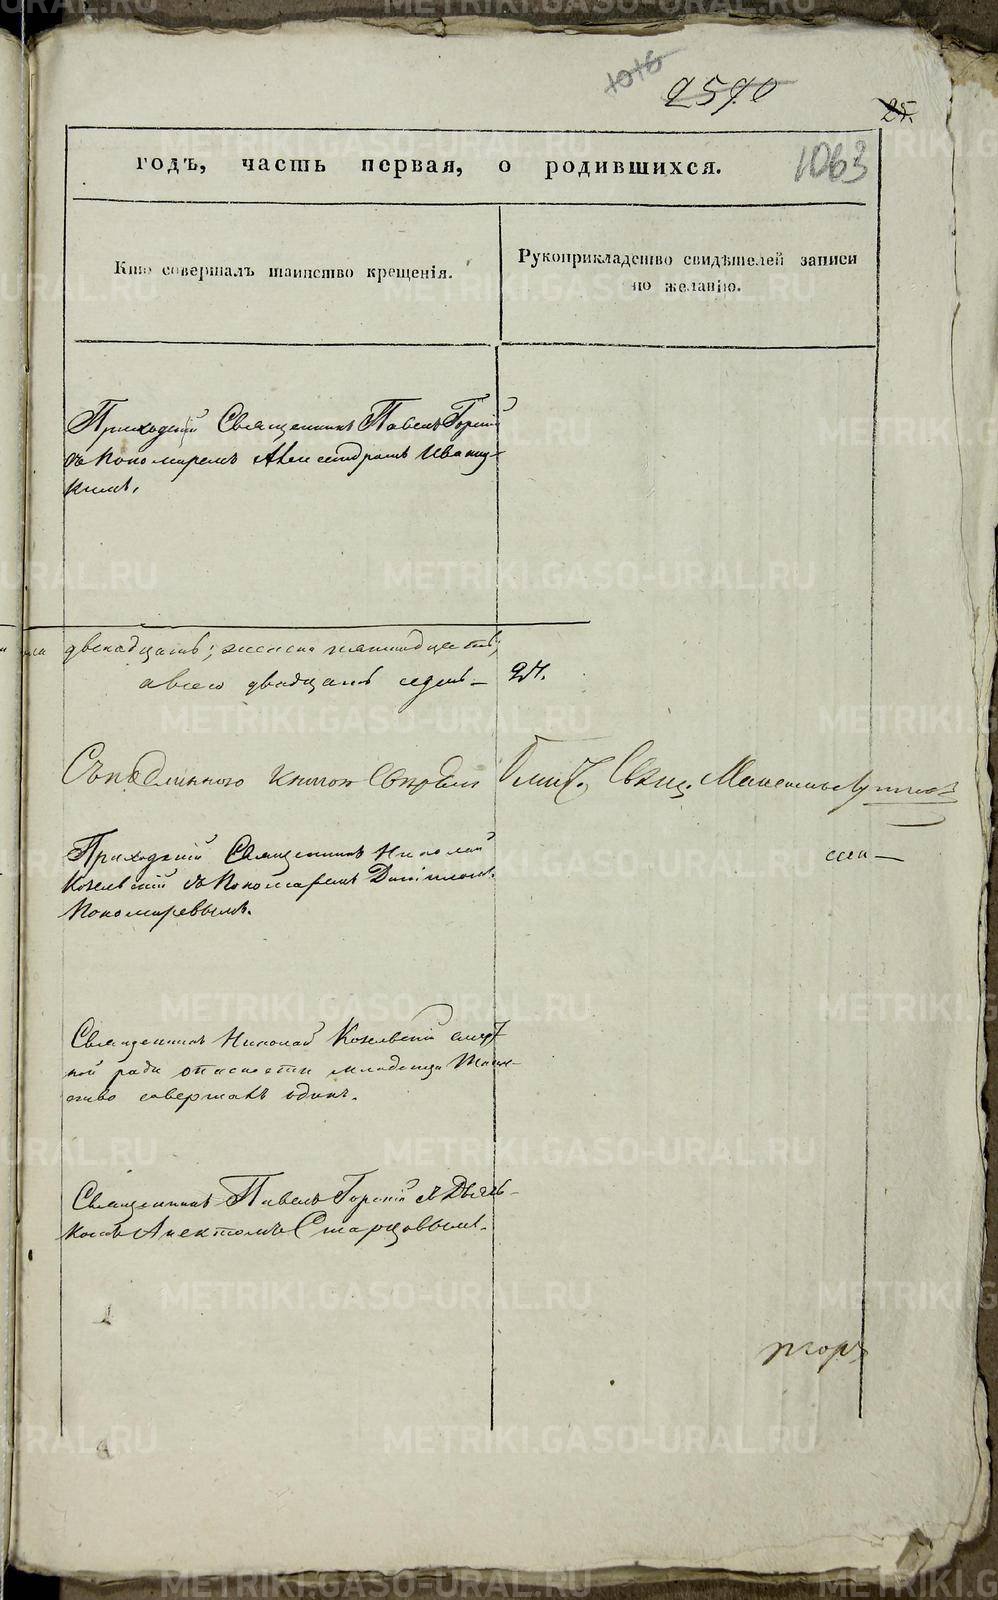 1016
2570
25.
годъ, часть первая, о родившихся.
1063
Кто совершалъ таинство крещенія.
Рукоприкладство свидѣтелей записи
по желанію.
Приходскій Священникъ Павелъ Горскій
съ Пономаремъ Александромъ Иваниц-
кимъ.
двенадцать; женска пятнадцать;
а всего двадцать седмь - 27.
Съ подлинною книгою свѣрялъ Свящ.
Приходскій Священникъ Николай
Козельскій съ Пономаремъ Даніиломъ
Пономаревымъ.
Священникъ Николай Козельскій смерт
ной ради опасности младенца Таин-
ство совершалъ одинъ.
Священникъ Павелъ Горскій съ Дьяч-
комъ Старцовымъ.
METRIKI.GASO-URAL.RU